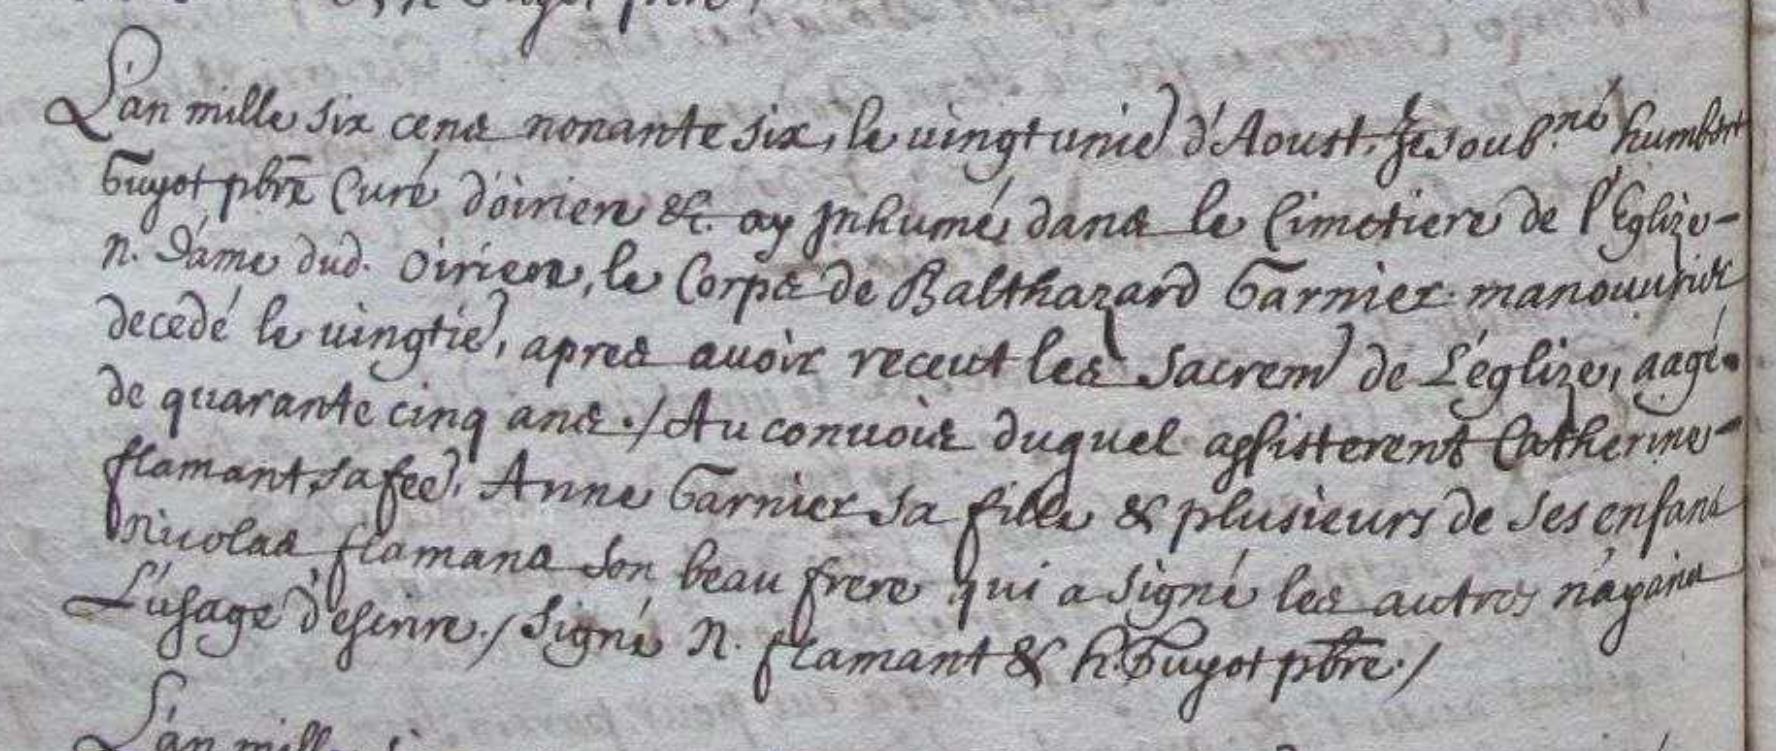 Guyot pbre
L'an mille six cens nonante six, le vingtunie d'Aoust, Je soub.né humbert
Guyot pbre Curé d'oirien &c. ay Inhumé dans le Cimetiere de l'Eglize
N. Dame dud. Oirien, le Corps de Balthazard Garnier manouurier
decedé le uingtie, apres auoir receut les Sacrem de L'églize, aagé
de quarante cinq ans./ Au conuoir duquel assisterent Catherine
flamant sa fee, Anne Garnier sa fille & plusieurs de ses enfans
Nicolas flamans son beau frere qui a signé les autres n'ayans
L'usage d'escrire./ Signé N. flamant & h. Guyot pbre./
L'an mille